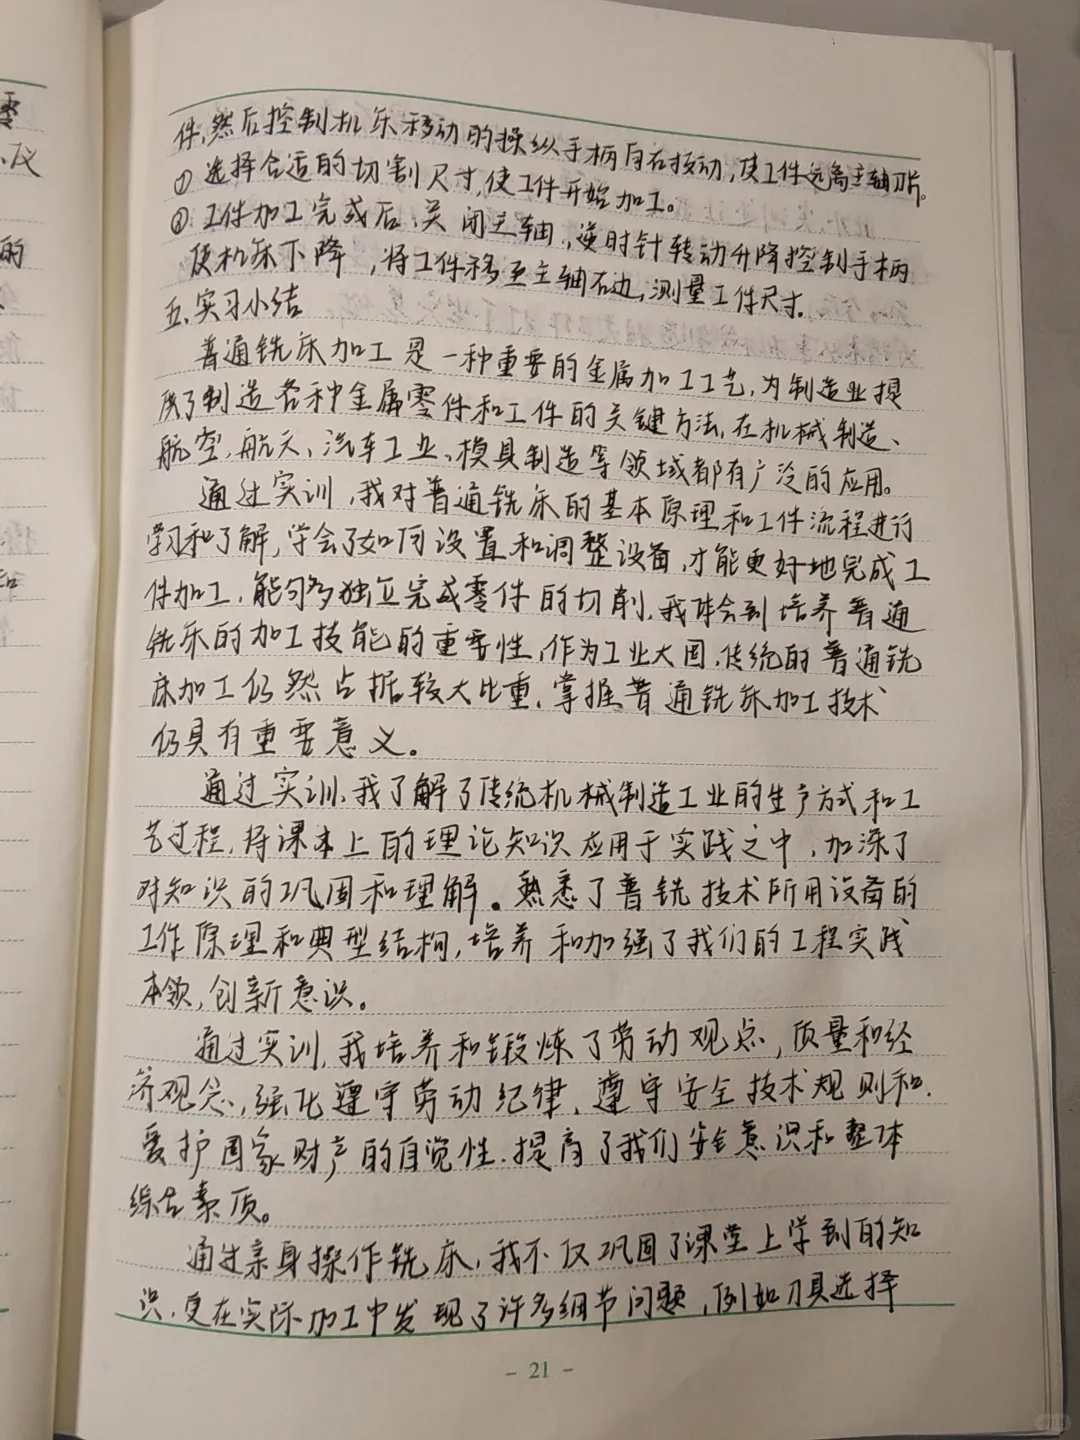 零
议
的
和
件,然后控制机床移动的操纵手柄向右扳动,使工件远离主轴刀片。
① 选择合适的切割尺寸,使工件开始加工。
② 工件加工完成后,关闭主轴,逆时针转动升降控制手柄
使机床下降,将工件移至主轴右边,测量工件尺寸.
五、实习小结
普通铣床加工是一种重要的金属加工工艺,为制造业提
供了制造各种金属零件和工件的关键方法,在机械制造、
航空,航天、汽车工业、模具制造等领域都有广泛的应用。
通过实训,我对普通铣床的基本原理和工件流程进行
学习和了解,学会了如何设置和调整设备,才能更好地完成工
件加工,能够独立完成零件的切削,我体会到培养普通
铣床的加工技能的重要性,作为工业大国,传统的普通铣
床加工仍然占据较大比重,掌握普通铣床加工技术
仍具有重要意义。
通过实训,我了解了传统机械制造工业的生产方式和工
艺过程,将课本上的理论知识应用于实践之中,加深了
对知识的巩固和理解。熟悉了普铣技术所用设备的
工作原理和典型结构,培养和加强了我们的工程实践
本领,创新意识。
通过实训,我培养和锻炼了劳动观点,质量和经
济观念,强化遵守劳动纪律、遵守安全技术规则和
爱护国家财产的自觉性.提高了我们安全意识和整体
综合素质。
通过亲身操作铣床,我不仅巩固了课堂上学到的知
识,更在实际加工中发现了许多细节问题,例如刀具选择
- 21 -